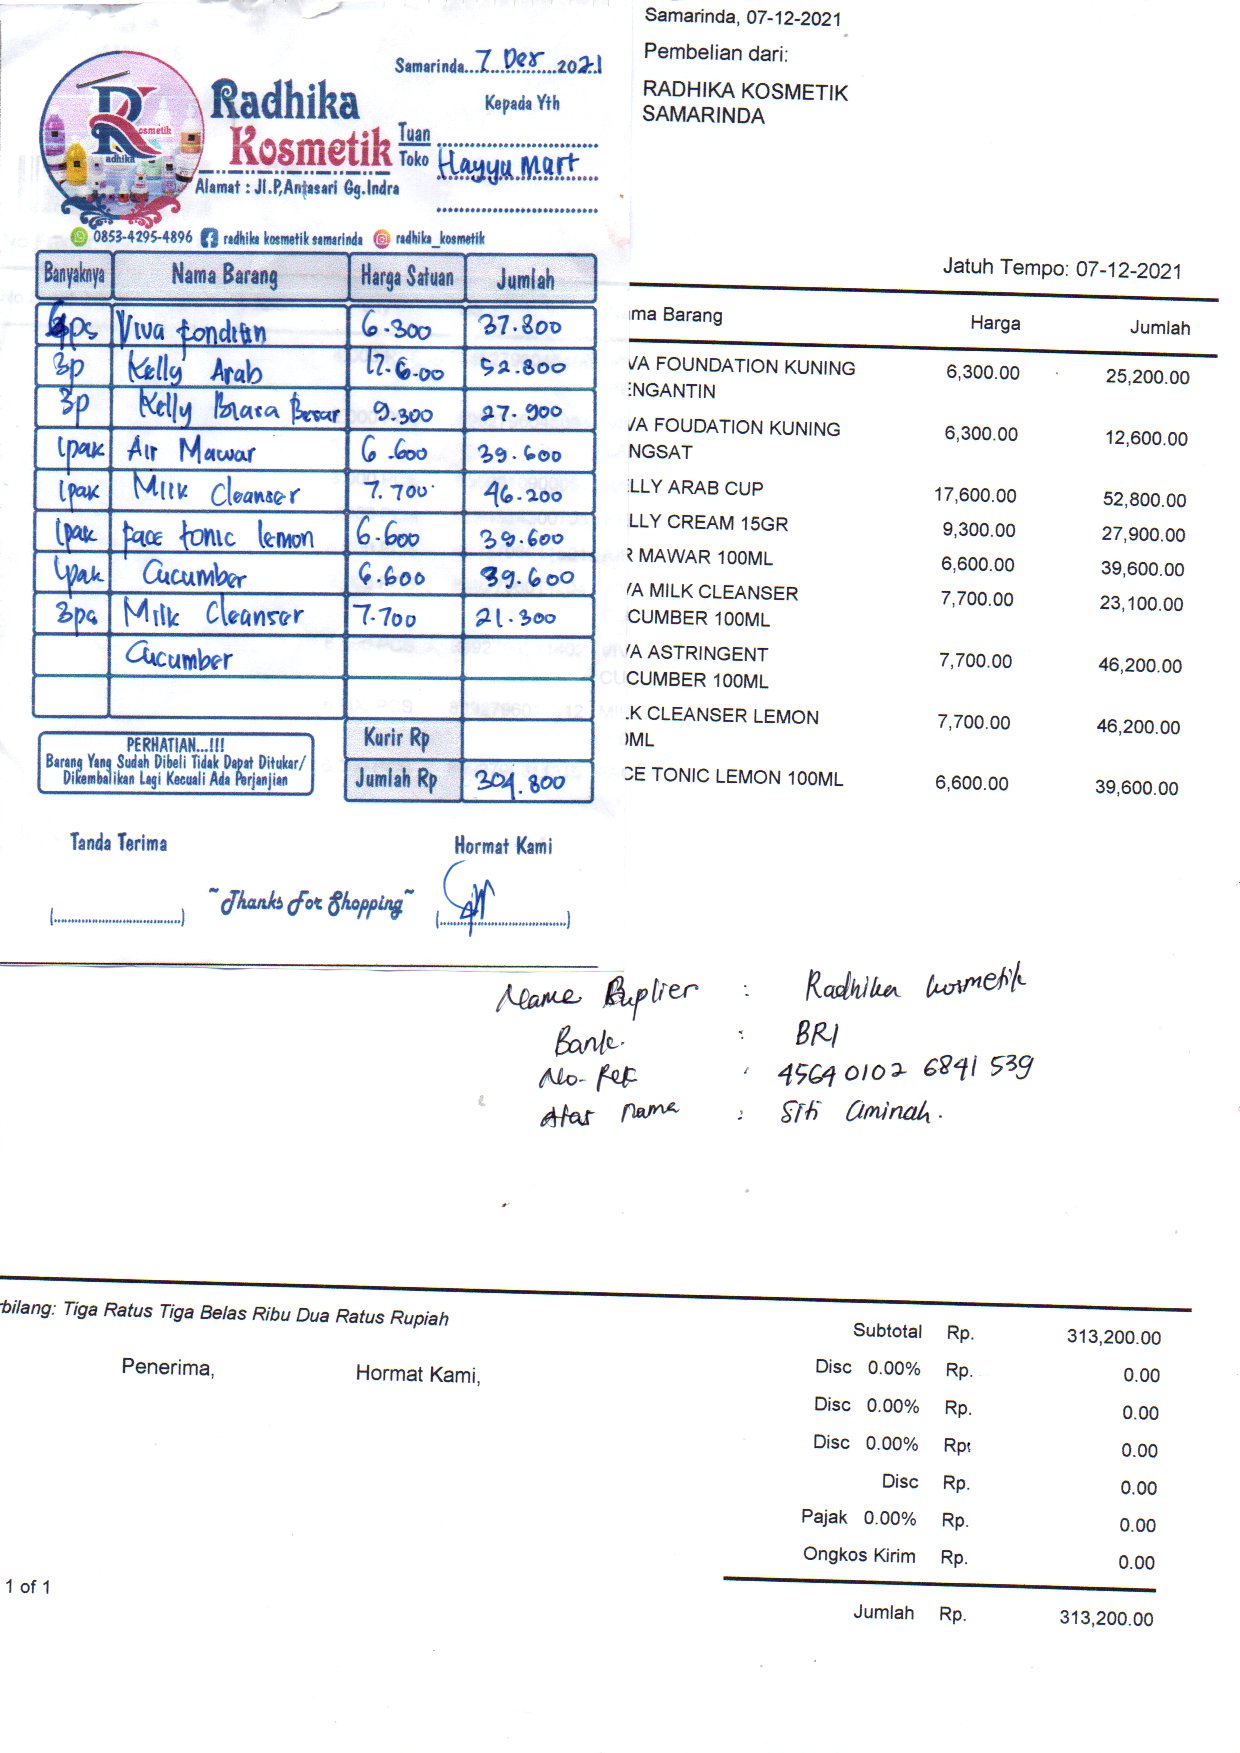 Samarinda, 07-12-2021
Pembelian dari:
RADHIKA KOSMETIK
SAMARINDA
Samarinda...7 Des...2021
Radhika
Kosmetik
Kepada Yth
Tuan
Toko Hayyu Mart
Alamat : Jl.P,Antasari Gg.Indra
0853-4295-4896 radhika kosmetik samarinda radhika_kosmetik
Banyaknya Nama Barang Harga Satuan Jumlah
6pcs Viva fonditin 6.300 37.800
3p Kelly Arab 17.600 52.800
3p Kelly Biasa Besar 9.300 27.900
1pak Air Mawar 6.600 39.600
1pak Milk Cleanser 7.700 46.200
1pak face tonic lemon 6.600 39.600
1pak Cucumber 6.600 39.600
3pcs Milk Cleanser 7.700 21.300
Cucumber
Kurir Rp
Jumlah Rp 304.800
PERHATIAN...!!!
Barang Yang Sudah Dibeli Tidak Dapat Ditukar/
Dikembalikan Lagi Kecuali Ada Perjanjian
Tanda Terima Hormat Kami
~Thanks For Shopping~
Jatuh Tempo: 07-12-2021
ma Barang Harga Jumlah
VA FOUNDATION KUNING 6,300.00 25,200.00
ENGANTIN
VA FOUDATION KUNING 6,300.00 12,600.00
NGSAT
ELLY ARAB CUP 17,600.00 52,800.00
ELLY CREAM 15GR 9,300.00 27,900.00
R MAWAR 100ML 6,600.00 39,600.00
VA MILK CLEANSER 7,700.00 23,100.00
CUMBER 100ML
VA ASTRINGENT 7,700.00 46,200.00
CUMBER 100ML
LK CLEANSER LEMON 7,700.00 46,200.00
0ML
CE TONIC LEMON 100ML 6,600.00 39,600.00
Name Suplier : Radhika kosmetik
Bank : BRI
No-Rek : 4564 0102 6841 539
Atas nama : Siti aminah.
rbilang: Tiga Ratus Tiga Belas Ribu Dua Ratus Rupiah
Penerima, Hormat Kami,
Subtotal Rp. 313,200.00
Disc 0.00% Rp. 0.00
Disc 0.00% Rp. 0.00
Disc 0.00% Rp. 0.00
Disc Rp. 0.00
Pajak 0.00% Rp. 0.00
Ongkos Kirim Rp. 0.00
1 of 1
Jumlah Rp. 313,200.00